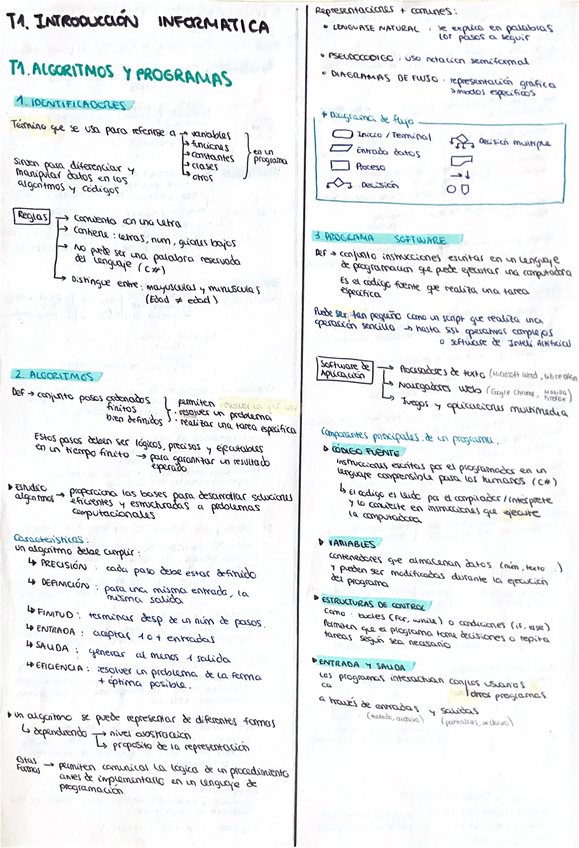 T1. INTRODUCCIÓN INFORMATICA
T1. ALGORITMOS Y PROGRAMAS
1. IDENTIFICADORES
Término que se usa para referirse a → variables
→ funciones
→ constantes
→ clases
→ otros
en un
programa
Sirven para diferenciar y
manipular datos en los
algoritmos y códigos
Reglas → Comienza con una letra
→ Contiene : letras, num, guiones bajos
→ No puede ser una palabra reservada
del lenguaje (C#)
→ Distingue entre : mayusculas y minusculas
(Edad ≠ edad)
2. ALGORITMOS
Def → conjunto pasos ordenados
finitos
bien definidos
permiten
· resolver un problema
· realizar una tarea especifica
Estos pasos deben ser lógicos, precisos y ejecutables
en un tiempo finito → para garantizar un resultado
esperado
▸ Estudio
algoritmos → proporciona las bases para desarrollar soluciones
eficientes y estructuradas a problemas
computacionales
Características :
un algoritmo debe cumplir :
↳ PRECISIÓN : cada paso debe estar definido
↳ DEFINICIÓN : para una misma entrada, la
misma salida
↳ FINITUD : terminar desp de un núm de pasos.
↳ ENTRADA : aceptar 1 o + entradas
↳ SALIDA : generar al menos 1 salida
↳ EFICIENCIA : resolver un problema de la forma
+ óptima posible.
▸ un algoritmo se puede representar de diferentes formas
↳ dependiendo → nivel abstracción
↳ proposito de la representación
Estas
formas → permiten comunicar la lógica de un procedimiento
antes de implementarlo en un lenguaje de
programación
Representaciones + comunes :
• LENGUAJE NATURAL : se explica en palabras
los pasos a seguir
• PSEUDOCODIGO : usa notacion semiformal
• DIAGRAMAS DE FLUJO : representación gráfica
modos especificos
* Diagrama de flujo
Inicio / Terminal
Entrada datos
Proceso
Decisión
Decisión multiple
3. PROGRAMA SOFTWARE
Def → conjunto instrucciones escritas en un lenguaje
de programacion que puede ejecutar una computadora
Es el codigo fuente que realiza una tarea
especifica
Puede ser tan pequeño como un script que realiza una
operación sencilla → hasta SSI operativos complejos
o software de Inteli Artificial
Software de
Aplicación
→ Procesadores de texto (Microsoft Word, libre office
→ Navegadores Web (Google Chrome, Mozilla
Firefox)
→ Juegos y aplicaciones multimedia
Componentes principales de un programa.
▸ CÓDIGO FUENTE
instrucciones escritas por el programador en un
lenguaje comprensible para los humanos (C#)
↳ el codigo es leido por el compilador/interprete
y lo convierte en instrucciones que ejecute
la computadora
▸ VARIABLES
contenedores que almacenan datos (núm, texto..)
y pueden ser modificados durante la ejecución
del programa
▸ ESTRUCTURAS DE CONTROL
como : bucles (for, while) o condiciones (if, else)
Permiten que el programa tome decisiones o repita
tareas según sea necesario
▸ ENTRADA Y SALIDA
Los programas interactuan con los usuarios
otros programas
a través de entradas y salidas
(teclado, archivo) (pantallas, archivo)